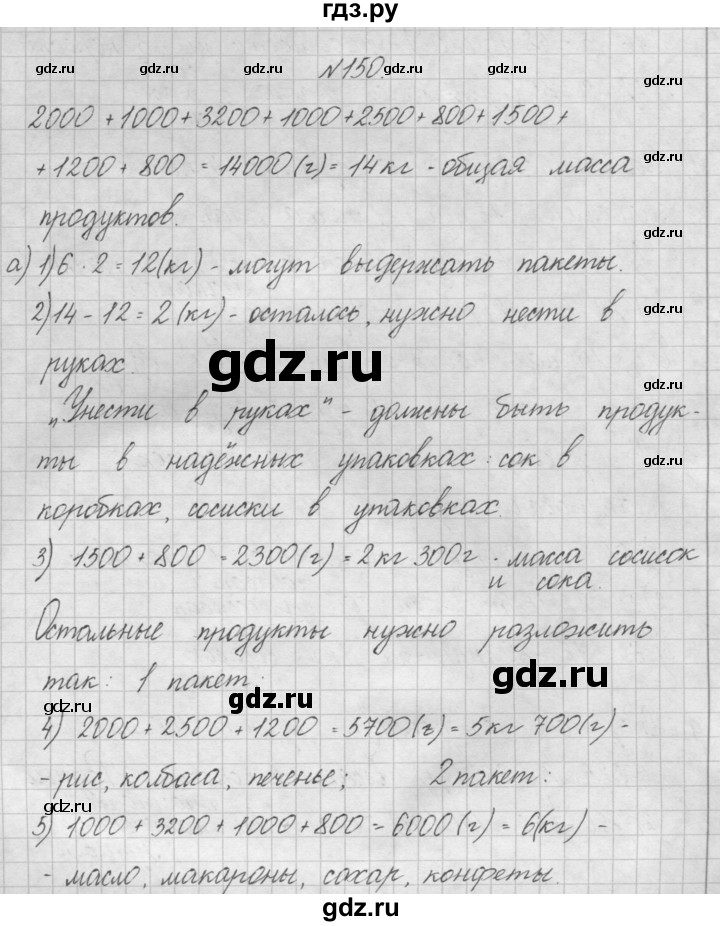 гдз.ру
gdz.ru gdz.ru gdz.ru gdz.ru gdz.ru
№150.
2000 + 1000 + 3200 + 1000 + 2500 + 800 + 1500 +
gdz.ru
+ 1200 + 800 = 14000 (г) = 14 кг - общая масса
gdz.ru
продуктов.
gdz.ru
а) 1) 6 · 2 = 12 (кг) - могут выдержать пакеты.
2) 14 - 12 = 2 (кг) - осталось, нужно нести в
gdz.ru
руках.
gdz.ru
gdz.ru
„Унести в руках" - должны быть продук-
ты в надёжных упаковках: сок в
gdz.ru
коробках, сосиски в упаковках.
3) 1500 + 800 = 2300 (г) = 2 кг 300 г - масса сосисок
gdz.ru
и сока.
Остальные продукты нужно разложить
так: 1 пакет:
gdz.ru
gdz.ru
4) 2000 + 2500 + 1200 = 5700 (г) = 5 кг 700 (г) -
- рис, колбаса, печенье; 2 пакет:
5) 1000 + 3200 + 1000 + 800 = 6000 (г) = 6 (кг) -
- масло, макароны, сахар, конфеты.
gdz.ru